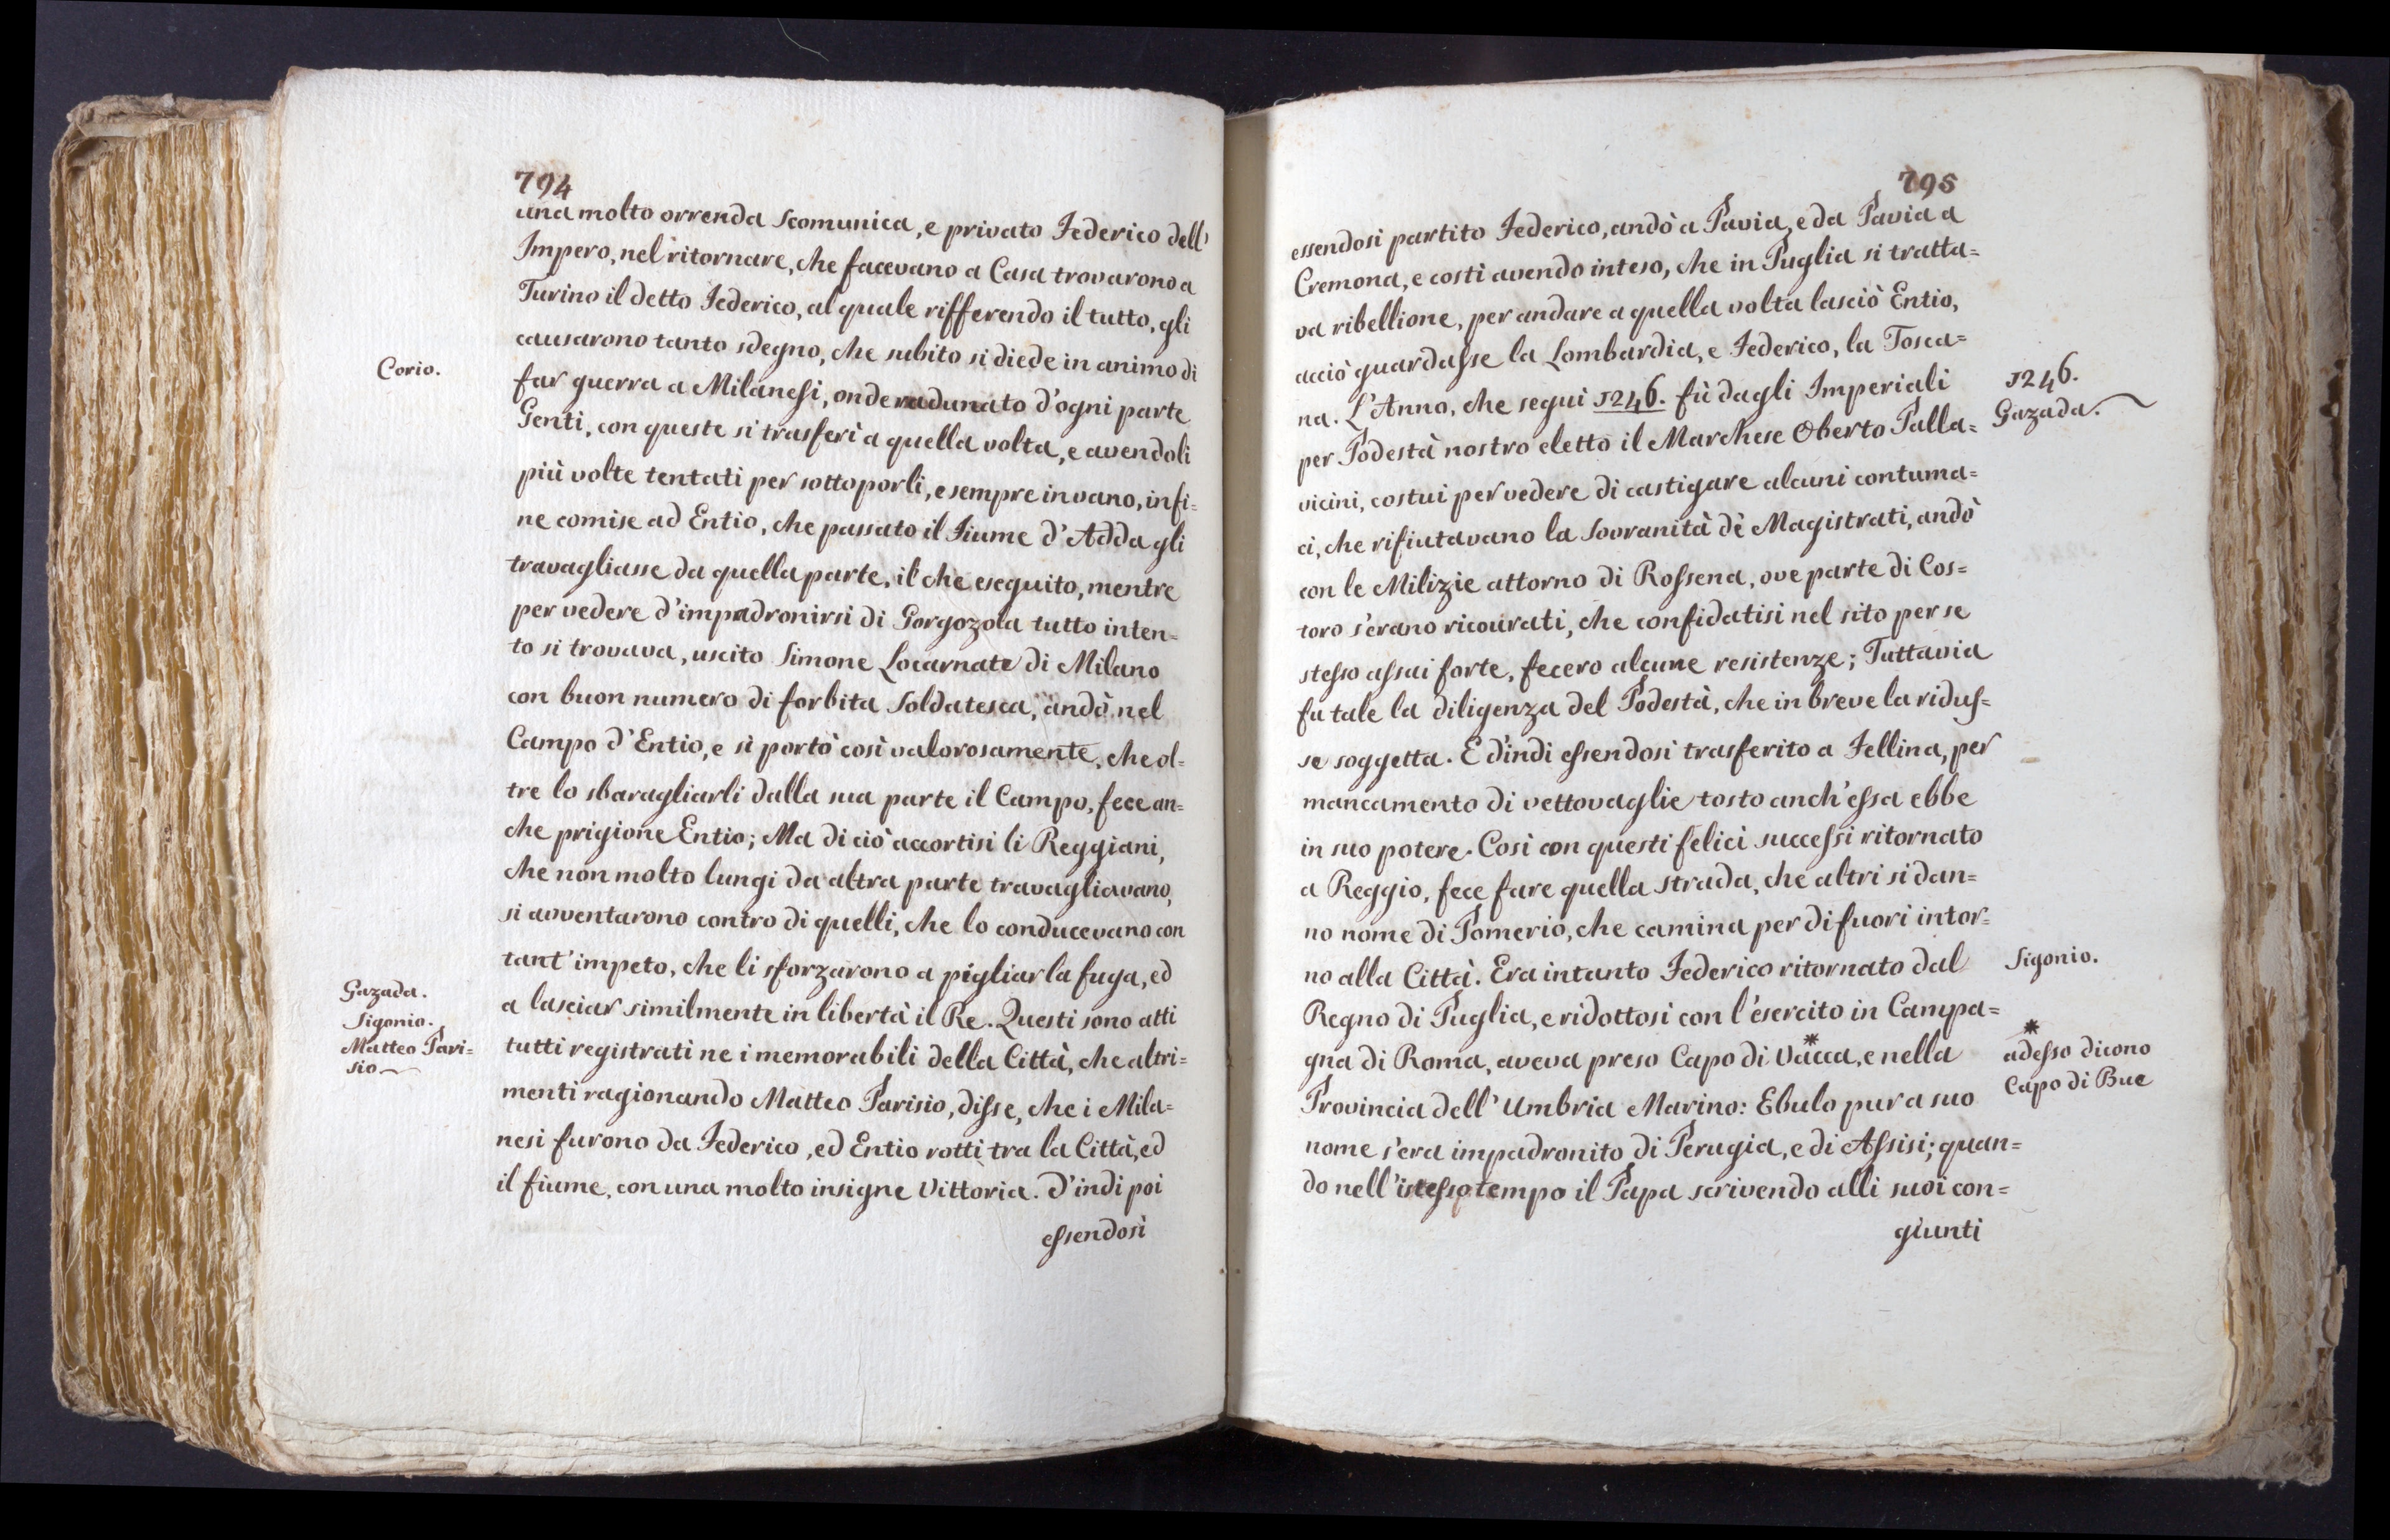 794
una molto orrenda Scomunica, e privato Federico dell'
Impero, nel ritornare, che facevano a Casa trovarono a
Turino il detto Federico, al quale rifferendo il tutto, gli
causarono tanto sdegno, che subito si diede in animo di
Corio.
far guerra a Milanesi, onde radunato d'ogni parte
Genti, con queste si trasferì a quella volta, e avendoli
più volte tentati per sottoporli, e sempre invano, infi=
ne comise ad Entio, che passato il Fiume d'Adda gli
travagliasse da quella parte, il che eseguito, mentre
per vedere d'impadronirsi di Gorgozola tutto inten=
to si trovava, uscito Simone Locarnate di Milano
con buon numero di forbita Soldatesca, andò nel
Campo d'Entio, e si portò così valorosamente, che ol=
tre lo sbaragliarli dalla sua parte il Campo, fece an=
che prigione Entio; Ma di ciò accortisi li Reggiani,
che non molto lungi da altra parte travagliavano,
si avventarono contro di quelli, che lo conducevano con
tant'impeto, che li sforzarono a pigliar la fuga, ed
Gazada.
Sigonio.
Matteo Pari=
sio
a lasciar similmente in libertà il Re. Questi sono atti
tutti registrati ne i memorabili della Città, che altri=
menti ragionando Matteo Parisio, disse, che i Mila=
nesi furono da Federico, ed Entio rotti tra la Città, ed
il fiume, con una molto insigne Vittoria. D'indi poi
essendosi
795
essendosi partito Federico, andò a Pavia, e da Pavia a
Cremona, e costì avendo inteso, che in Puglia si tratta=
va ribellione, per andare a quella volta lasciò Entio,
acciò guardasse la Lombardia, e Federico, la Tosca=
na. L'Anno, che seguì 1246. fù dagli Imperiali
1246.
Gazada.
per Podestà nostro eletto il Marchese Oberto Palla=
vicini, costui per vedere di castigare alcuni contuma=
ci, che rifiutavano la Sovranità dè Magistrati, andò
con le Milizie attorno di Rossena, ove parte di Cos=
toro s'erano ricourati, che confidatisi nel sito per se
stesso assai forte, fecero alcune resistenze; Tuttavia
fu tale la diligenza del Podestà, che in breve la ridus=
se soggetta. E d'indi essendosi trasferito a Fellina, per
mancamento di vettovaglie tosto anch'essa ebbe
in suo potere. Così con questi felici successi ritornato
a Reggio, fece fare quella strada, che altri si dan=
no nome di Pomerio, che camina per di fuori intor=
no alla Città. Era intanto Federico ritornato dal
Sigonio.
Regno di Puglia, e ridottosi con l'esercito in Campa=
gna di Roma, aveva preso Capo di Vacca*, e nella
*
adesso dicono
Capo di Bue
Provincia dell'Umbria Marino: Ebulo pur a suo
nome s'era impadronito di Perugia, e di Assisi; quan=
do nell'istesso tempo il Papa scrivendo alli suoi con=
giunti